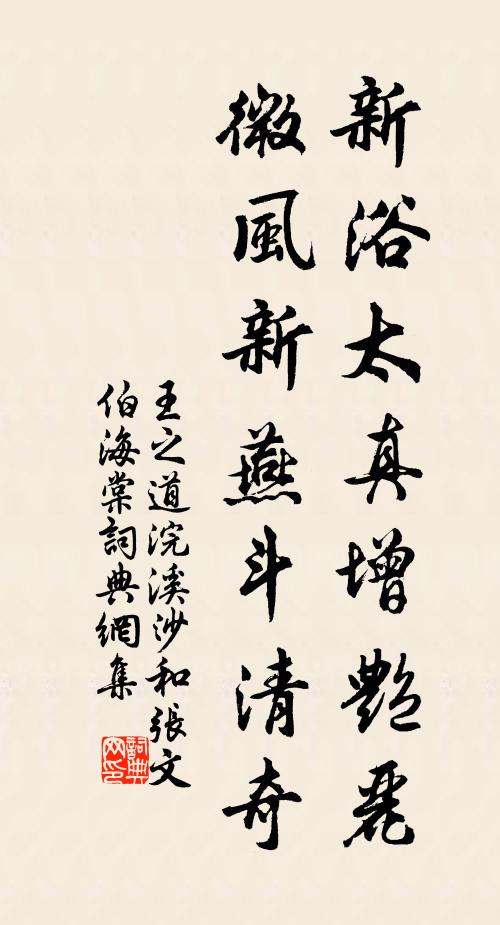 新浴太真增艷麗
微風新燕斗清奇
王之道浣溪沙和張文
伯海棠詞典網集
詞典
网印